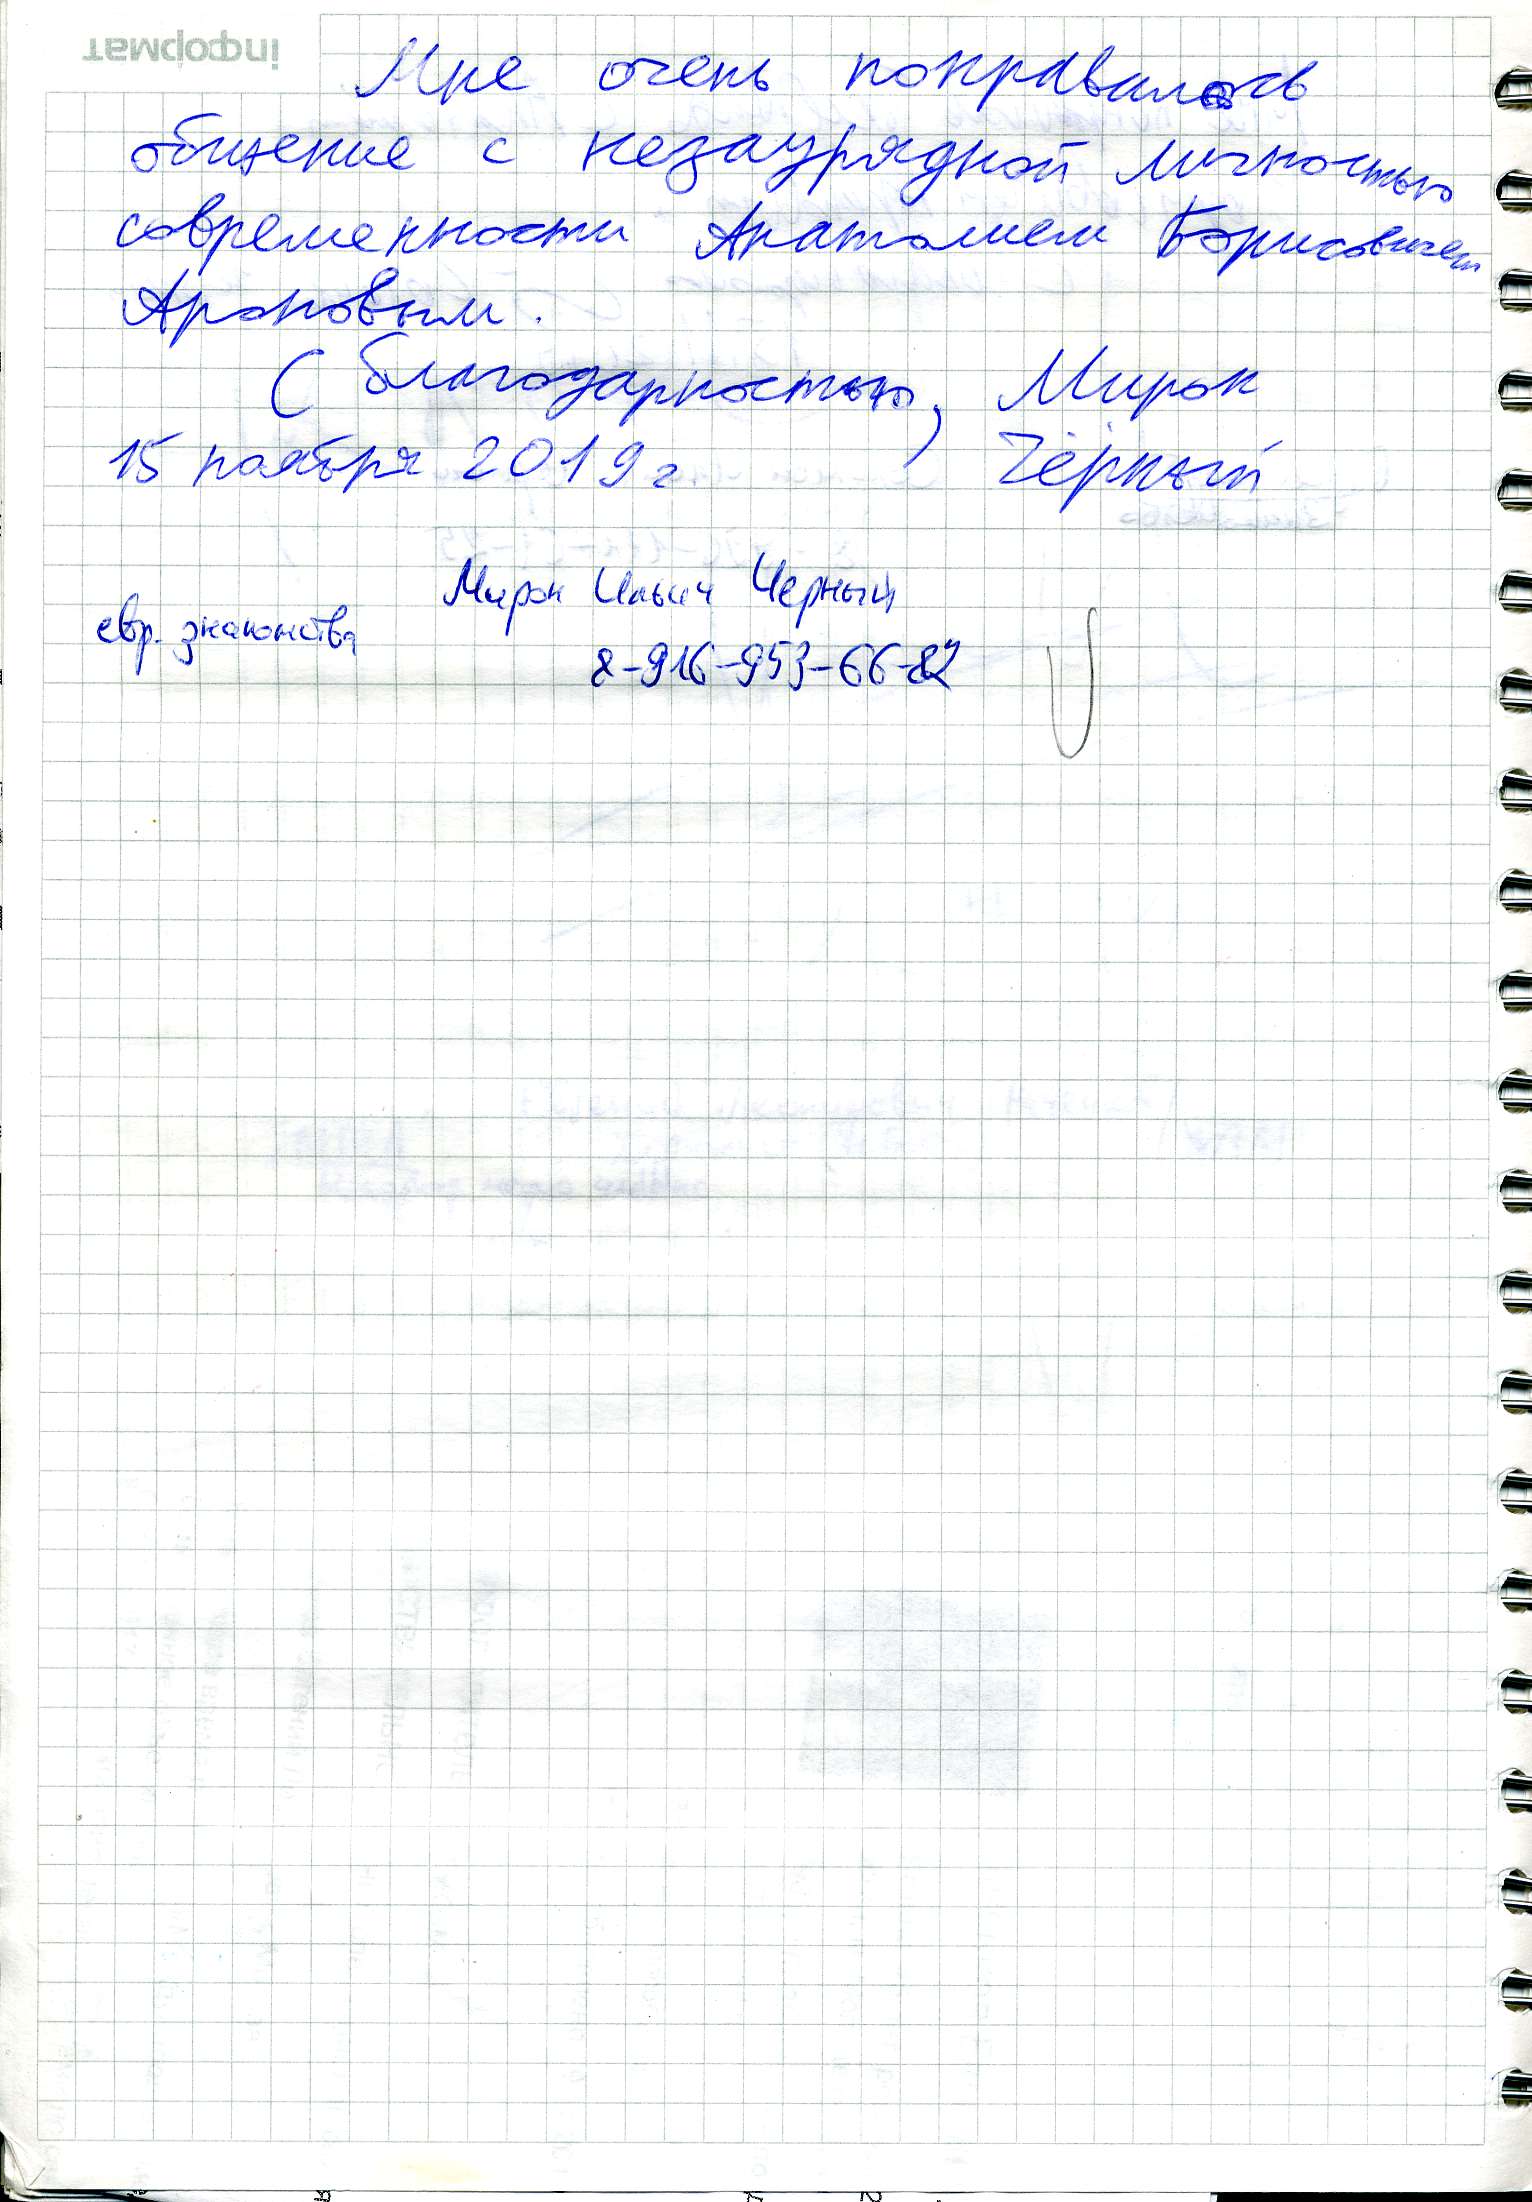 інформат
Мне очень понравилось
общение с незаурядной личностью
современности Анатолием Борисовичем
Ароновым.
С благодарностью, Мирон
15 ноября 2019 г Чёрный
Мирон Ильич Черный
евр. знакомства
8-916-953-66-82